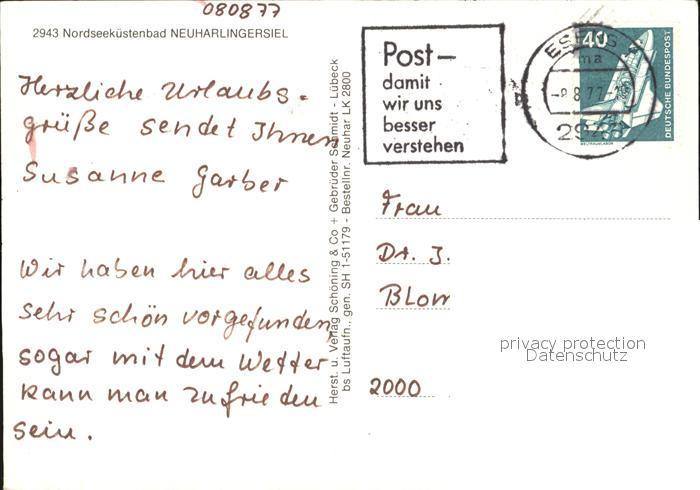 080877
2943 Nordseeküstenbad NEUHARLINGERSIEL
Herzliche Urlaubs-
grüße sendet Ihnen
Susanne Garber
Wir haben hier alles
sehr schön vorgefunden,
sogar mit dem Wetter
kann man zufrieden
sein.
Herst. u. Verlag Schöning & Co + Gebrüder Schmidt - Lübeck
bs Luftaufn., gen. SH 1-51179 - Bestellnr. Neuhar LK 2800
Post-
damit
wir uns
besser
verstehen
ESENS
ma
-8.8.77
40
DEUTSCHE BUNDESPOST
WELTRAUMLABOR
Frau
Dr. J.
Blow
2000
privacy protection
Datenschutz